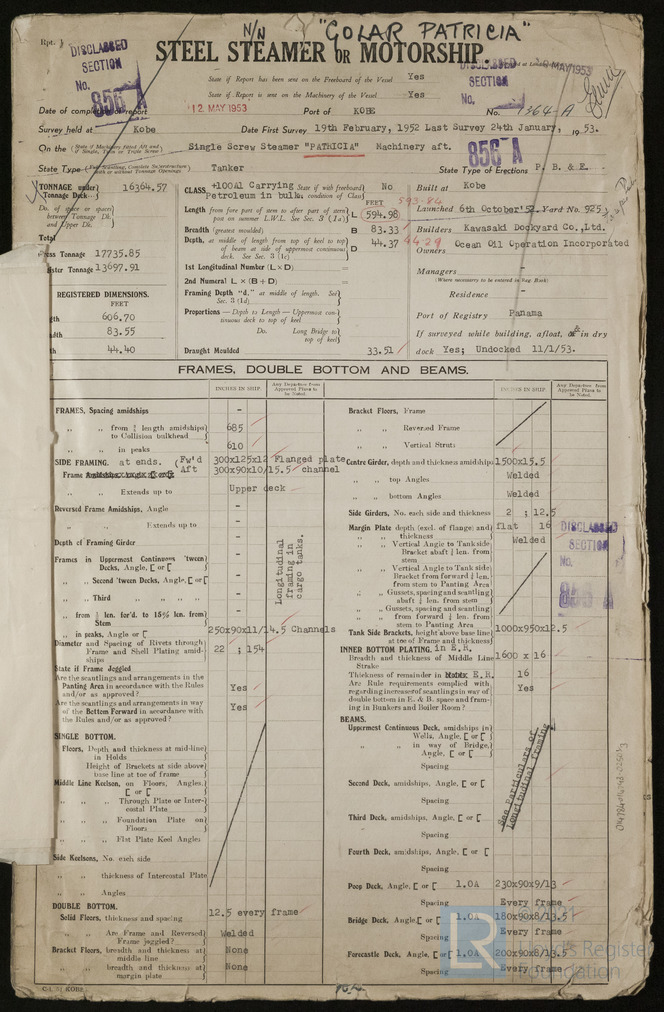 Rpt.
N/N "GOLAR PATRICIA"
DISCLASSED
SECTION
No. 856 A
STEEL STEAMER OR MOTORSHIP.
State if Report has been sent on the Freeboard of the Vessel Yes
State if Report is sent on the Machinery of the Vessel Yes
DISCLASSED
SECTION
No.
856 A
MAY 1953
Date of completion of report 12 MAY 1953 Port of KOBE No. 1364-A
Survey held at Kobe Date First Survey 19th February, 1952 Last Survey 24th January, 1953.
On the (State if Machinery fitted Aft and if Single, Twin or Triple Screw) Single Screw Steamer "PATRICIA" Machinery aft.
State Type Tanker State Type of Erections P. B. & F.
TONNAGE under Tonnage Deck 16364.57
Do. of space or spaces between Tonnage Dk. and Upper Dk.
Total
Gross Tonnage 17735.85
Register Tonnage 13697.91
REGISTERED DIMENSIONS.
FEET
606.70
83.55
44.40
CLASS +100A1 Carrying Petroleum in bulk. State if with freeboard condition of Class No
FEET 593.84
Length from fore part of stem to after part of stern post on summer L.W.L. See Sec. 3 (1a) L 594.98
Breadth (greatest moulded) B 83.33
Depth, at middle of length from top of keel to top of beam at side of uppermost continuous deck. See Sec. 3 (1c) D 44.37 44.29
1st Longitudinal Number (L × D)
2nd Numeral L × (B + D)
Framing Depth "d," at middle of length. See Sec. 3 (1d)
Proportions — Depth to Length — Uppermost continuous deck to top of keel
Do. Long Bridge to top of keel
Draught Moulded 33.51
Built at Kobe
Launched 6th October '52 Yard No. 925
Builders Kawasaki Dockyard Co., Ltd.
Owners Ocean Oil Operation Incorporated
Managers -
(Where necessary to be entered in Reg. Book)
Residence -
Port of Registry Panama
If surveyed while building, afloat, or & in dry
dock Yes; Undocked 11/1/53.
FRAMES, DOUBLE BOTTOM AND BEAMS.
INCHES IN SHIP. Any Departure from Approved Plans to be Noted.
FRAMES, Spacing amidships -
" " from ⅗ length amidships to Collision bulkhead 685
" " in peaks 610
SIDE FRAMING. at ends. (Fw'd 300x125x12 Flanged plate
Aft 300x90x10/15.5 channel
" " Extends up to Upper deck
Reversed Frame Amidships, Angle -
" " Extends up to -
Depth of Framing Girder -
Frames in Uppermost Continuous 'tween Decks, Angle, [ or [ -
" " Second 'tween Decks, Angle, [ or [ -
" " Third " " " " -
" " from ⅗ len. for'd. to 15% len. from Stem -
Longitudinal framing in cargo tanks.
" " in peaks, Angle or [ 250x90x11/14.5 Channels
Diameter and Spacing of Rivets through Frame and Shell Plating amidships 22 ; 154
State if Frame Joggled
Are the scantlings and arrangements in the Panting Area in accordance with the Rules and/or as approved? Yes
Are the scantlings and arrangements in way of the Bottom Forward in accordance with the Rules and/or as approved? Yes
SINGLE BOTTOM.
Floors, Depth and thickness at mid-line in Holds
Height of Brackets at side above base line at toe of frame
Middle Line Keelson, on Floors, Angles, [ or [
" " Through Plate or Intercostal Plate
" " Foundation Plate on Floors
" " Flat Plate Keel Angles
Side Keelsons, No. each side
" " thickness of Intercostal Plate
" " Angles
DOUBLE BOTTOM.
Solid Floors, thickness and spacing 12.5 every frame
" " Are Frame and Reversed Frame joggled? Welded
Bracket Floors, breadth and thickness at middle line None
" " breadth and thickness at margin plate None
C-1, 51 KOBE
INCHES IN SHIP. Any Departure from Approved Plans to be Noted.
Bracket Floors, Frame
" " Reversed Frame
" " Vertical Struts
Centre Girder, depth and thickness amidships 1500x15.5
" " top Angles Welded
" " bottom Angles Welded
Side Girders, No. each side and thickness 2 ; 12.5
Margin Plate depth (excl. of flange) and thickness flat 16
" " Vertical Angle to Tank side Bracket abaft ¼ len. from stem Welded
" " Vertical Angle to Tank side Bracket from forward ¼ len. from stem to Panting Area
" " Gussets, spacing and scantling abaft ¼ len. from stem
" " Gussets, spacing and scantling from forward ¼ len. from stem to Panting Area
Tank Side Brackets, height above base line at toe of Frame and thickness 1000x950x12.5
INNER BOTTOM PLATING. in E.R.
Breadth and thickness of Middle Line Strake 1600 x 16
Thickness of remainder in E.R. 16
Are Rule requirements complied with regarding increase of scantlings in way of double bottom in E. & B. space and framing in Bunkers and Boiler Room? Yes
DISCLASSED
SECTION
No.
856 A
BEAMS.
Uppermost Continuous Deck, amidships in Wells, Angle, [ or [
" " in way of Bridge, Angle, [ or [
Spacing
Second Deck, amidships, Angle, [ or [
Spacing
Third Deck, amidships, Angle, [ or [
Spacing
Fourth Deck, amidships, Angle, [ or [
Spacing
See Particulars of Longitudinal framing
Poop Deck, Angle, [ or [ 1.0A 230x90x9/13
Spacing Every frame
Bridge Deck, Angle, [ or [ 1.0A 180x90x8/13.5
Spacing Every frame
Forecastle Deck, Angle, [ or [ 1.0A 200x90x8/13.5
Spacing Every frame
LR
Lloyd's Register
Foundation